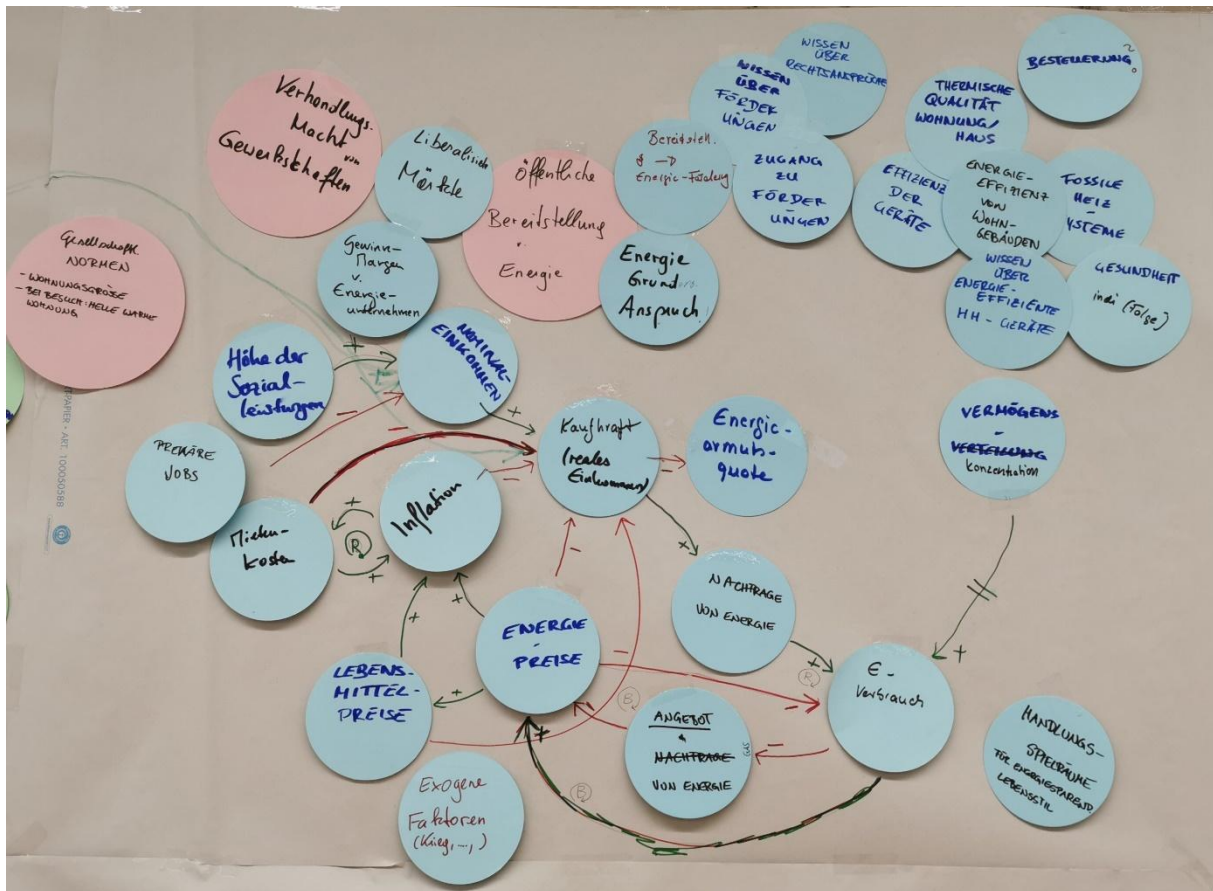 Verhandlungs-
Macht von
Gewerkschaften
Liberalisierte
Märkte
Öffentliche
Bereitstellung
v.
Energie
Bereitstell.
Energie-Förderung
WISSEN
ÜBER
FÖRDER
UNGEN
WISSEN
ÜBER
RECHTSANSPRÜCHE
ZUGANG
ZU
FÖRDER
UNGEN
BESTEUERUNG?
THERMISCHE
QUALITÄT
WOHNUNG/
HAUS
EFFIZIENZ
DER
GERÄTE
ENERGIE-
EFFIZIENZ
VON
WOHN-
GEBÄUDEN
FOSSILE
HEIZ-
SYSTEME
WISSEN
ÜBER
ENERGIE-
EFFIZIENTE
HH-GERÄTE
GESUNDHEIT
indi (Folge)
Gesellschaftl.
NORMEN
- WOHNUNGSGRÖSSE
- BEI BESUCH: HELLE WARME
WOHNUNG
Gewinn-
Margen
v.
Energie-
unternehmen
Energie
Grund
Anspruch!
Höhe der
Sozial-
leistungen
+
+
NOMINAL-
EINKOMMEN
+
-
-
PREKÄRE
JOBS
Mieten-
kosten
+
R
+
Inflation
-
Kaufkraft
(reales
Einkommen)
-
Energie-
armuts-
quote
VERMÖGENS
-
VERTEILUNG
Konzentration
+
+
+
-
+
NACHFRAGE
VON ENERGIE
+
R
LEBENS-
MITTEL-
PREISE
+
ENERGIE
-
PREISE
-
-
-
B
+
ANGEBOT
&
NACHFRAGE
VON ENERGIE
GAS
-
E-
Verbrauch
B
Exogene
Faktoren
(Krieg, ...,)
HANDLUNGS-
SPIELRÄUME
FÜR ENERGIESPAREND.
LEBENSSTIL
PAPIER • ART. 1000050588